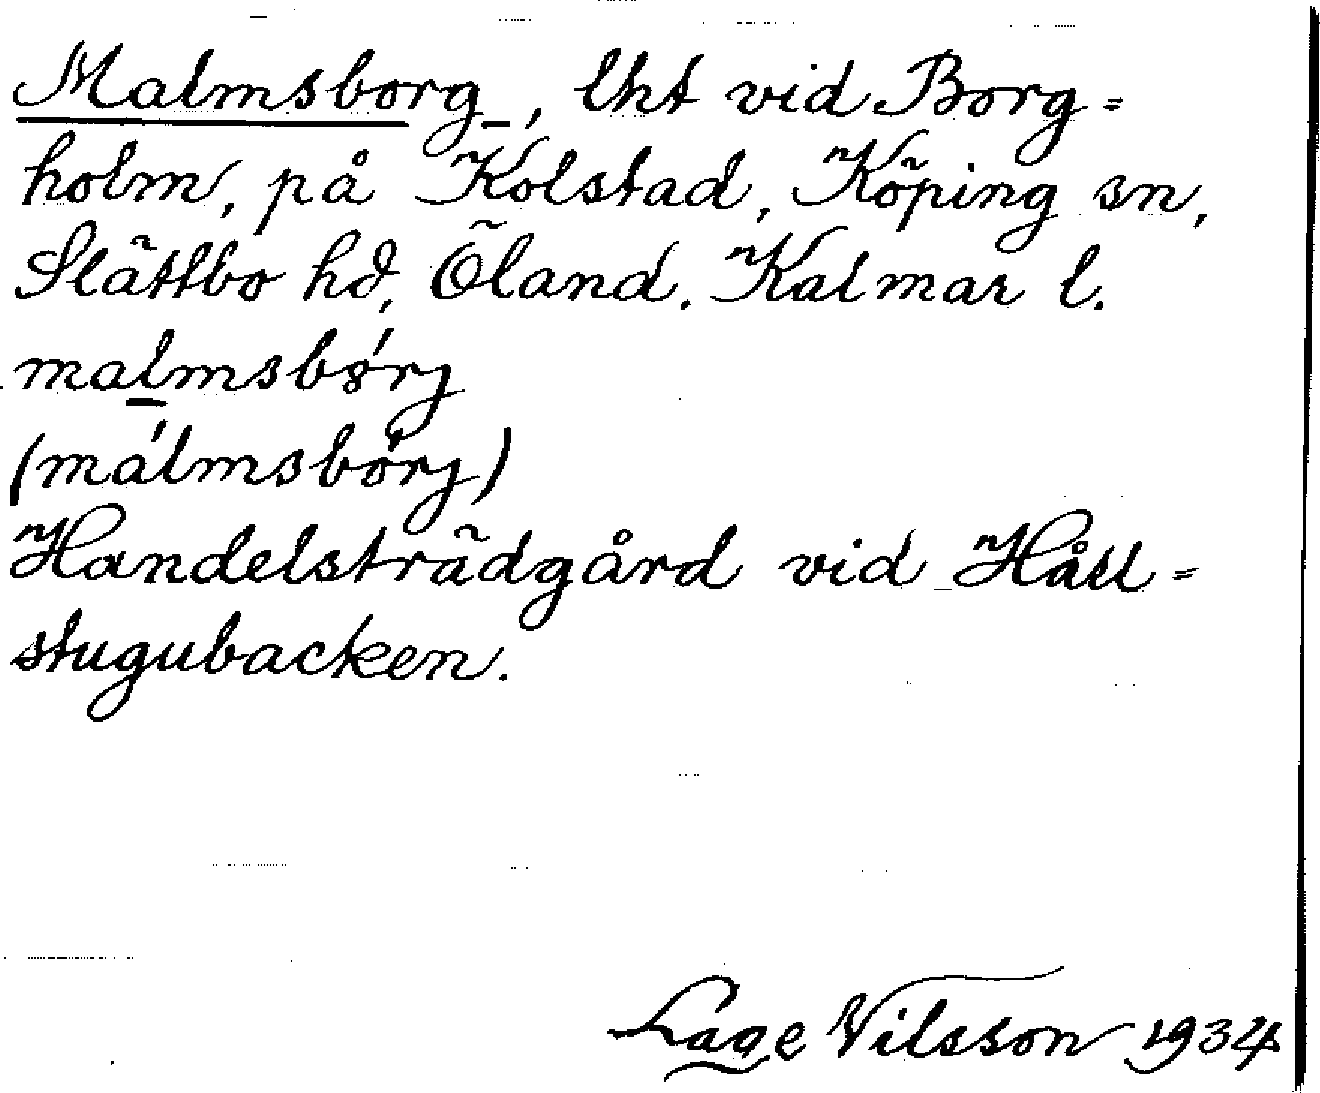 Malmsborg, lht vid Borg=
holm, på Kolstad, Köping sn,
Slättbo hd, Öland. Kalmar l.
malmsbórj
(málmsbòrj)
Handelsträdgård vid Håll=
stugubacken.
Lage Nilsson 1934